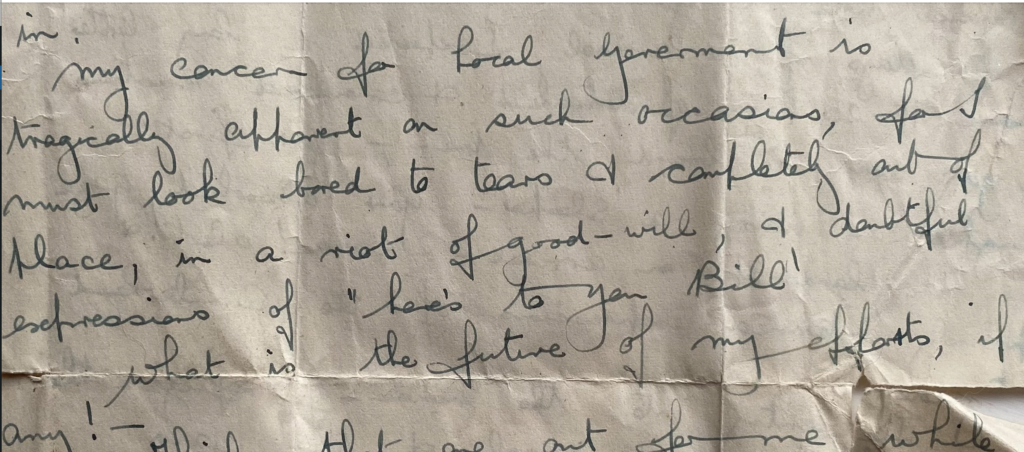 in.
my concern for Local Government is
tragically apparent on such occasions, for I
must look bored to tears & completely out of
place, in a riot of good-will, & doubtful
expressions of "here's to you Bill"
what is the future of my efforts, if
any! — that are out for me while